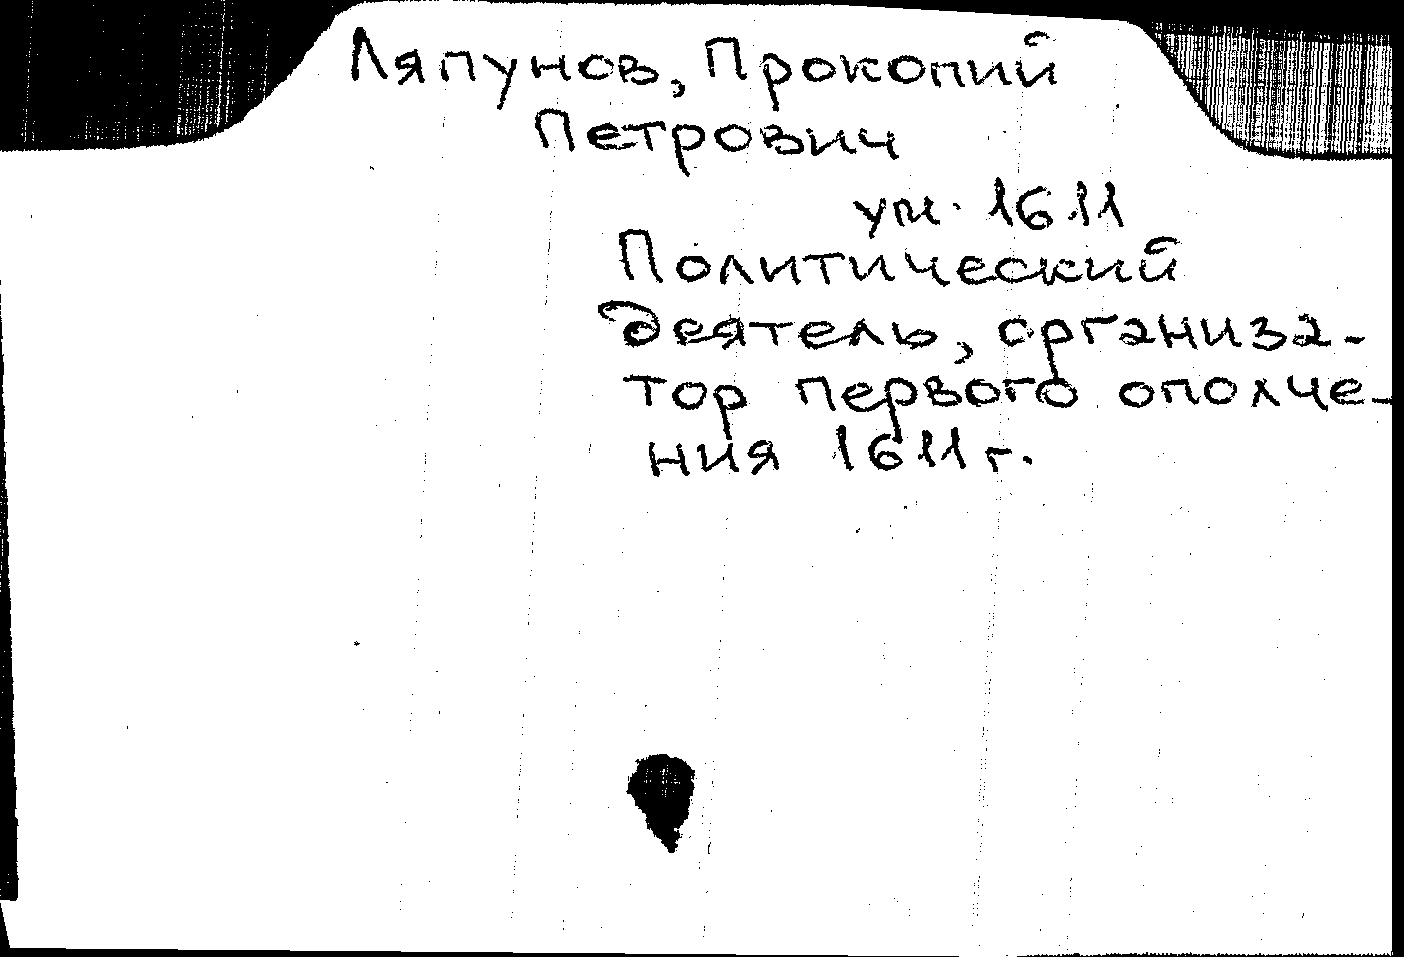 Ляпунов, Прокопий
Петрович
ум. 1611
Политический
деятель, организа-
тор первого ополче-
ния 1611 г.